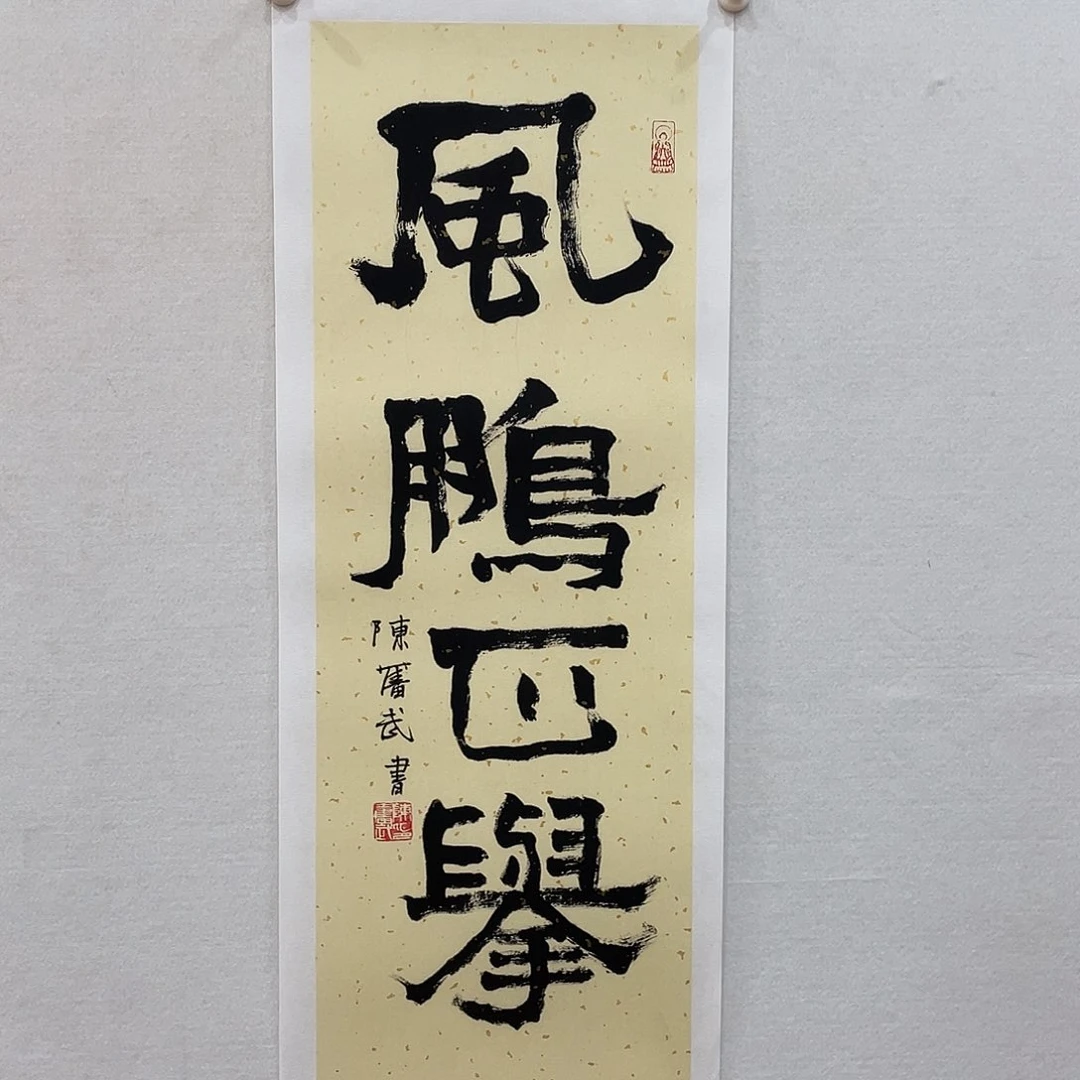 風鵬正舉
陳奮武書